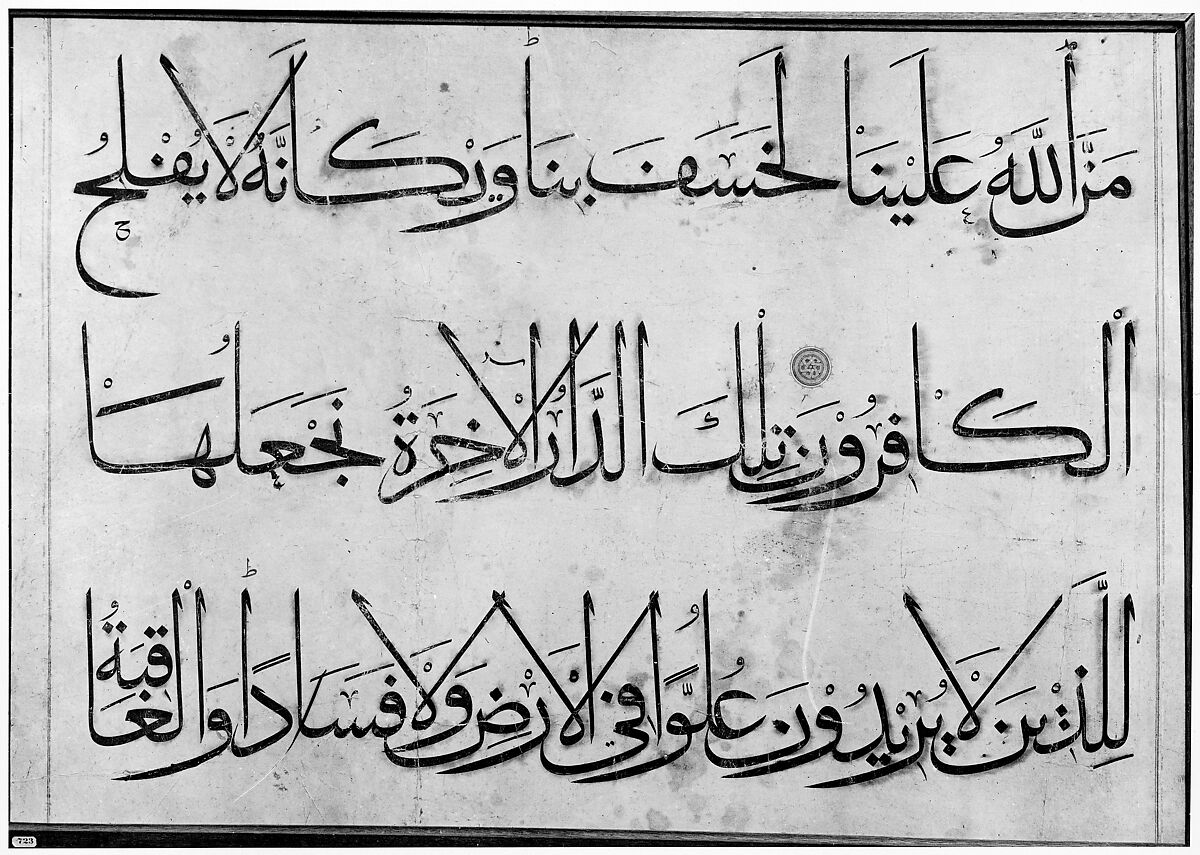 مَنَّ اللَّهُ عَلَيْنَا لَخَسَفَ بِنَا وَيْكَأَنَّهُ لَا يُفْلِحُ
الْكَافِرُونَ تِلْكَ الدَّارُ الْآخِرَةُ نَجْعَلُهَا
لِلَّذِينَ لَا يُرِيدُونَ عُلُوًّا فِي الْأَرْضِ وَلَا فَسَادًا وَالْعَاقِبَةُ
723